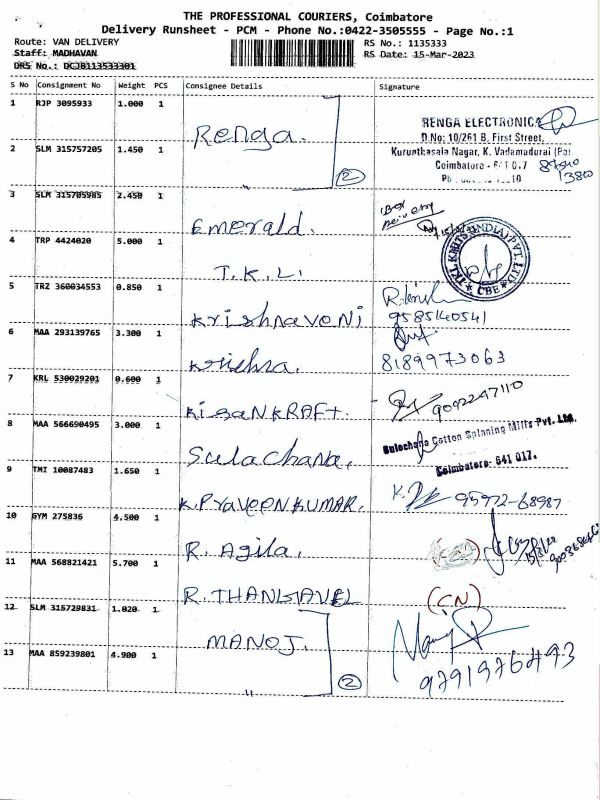 THE PROFESSIONAL COURIERS, Coimbatore
Delivery Runsheet - PCM - Phone No.:0422-3505555 - Page No.:1
Route: VAN DELIVERY
RS No.: 1135333
Staff: MADHAVAN
RS Date: 15-Mar-2023
DRS No.: DCJB113533301
S No Consignment No Weight PCS Consignee Details Signature
1 RJP 3095933 1.000 1 Renga.
RENGA ELECTRONICS
D.No: 10/261 B, First Street,
2 SLM 315757205 1.450 1 " (2)
Kurunthasala Nagar, K. Vadamadurai (Po)
Coimbatore - 641 017
3 SLM 315705985 2.450 1 Emerald.
Box Delivery
4 TRP 4424020 5.000 1 T.K.L.
CBE
5 TRZ 360034553 0.850 1 Krishnaveni
9585140541
6 MAA 293139765 3.300 1 Krishna.
8189973063
7 KRL 530029201 0.600 1 KisanKRAFT.
9092247110
8 MAA 566690495 3.000 1 Sulachana.
Sulochana Cotton Spinning Mills Pvt. Ltd.
Coimbatore- 641 017.
9 TMI 10087483 1.650 1 K.PraveenKUMAR.
95972-68987
10 GYM 275836 4.500 1 R. Agila.
11 MAA 568821421 5.700 1 R. THANGAVEL (CN)
12 SLM 315729831 1.020 1 MANOJ.
Manoj
13 MAA 859239801 4.900 1 " (2)
9791976493